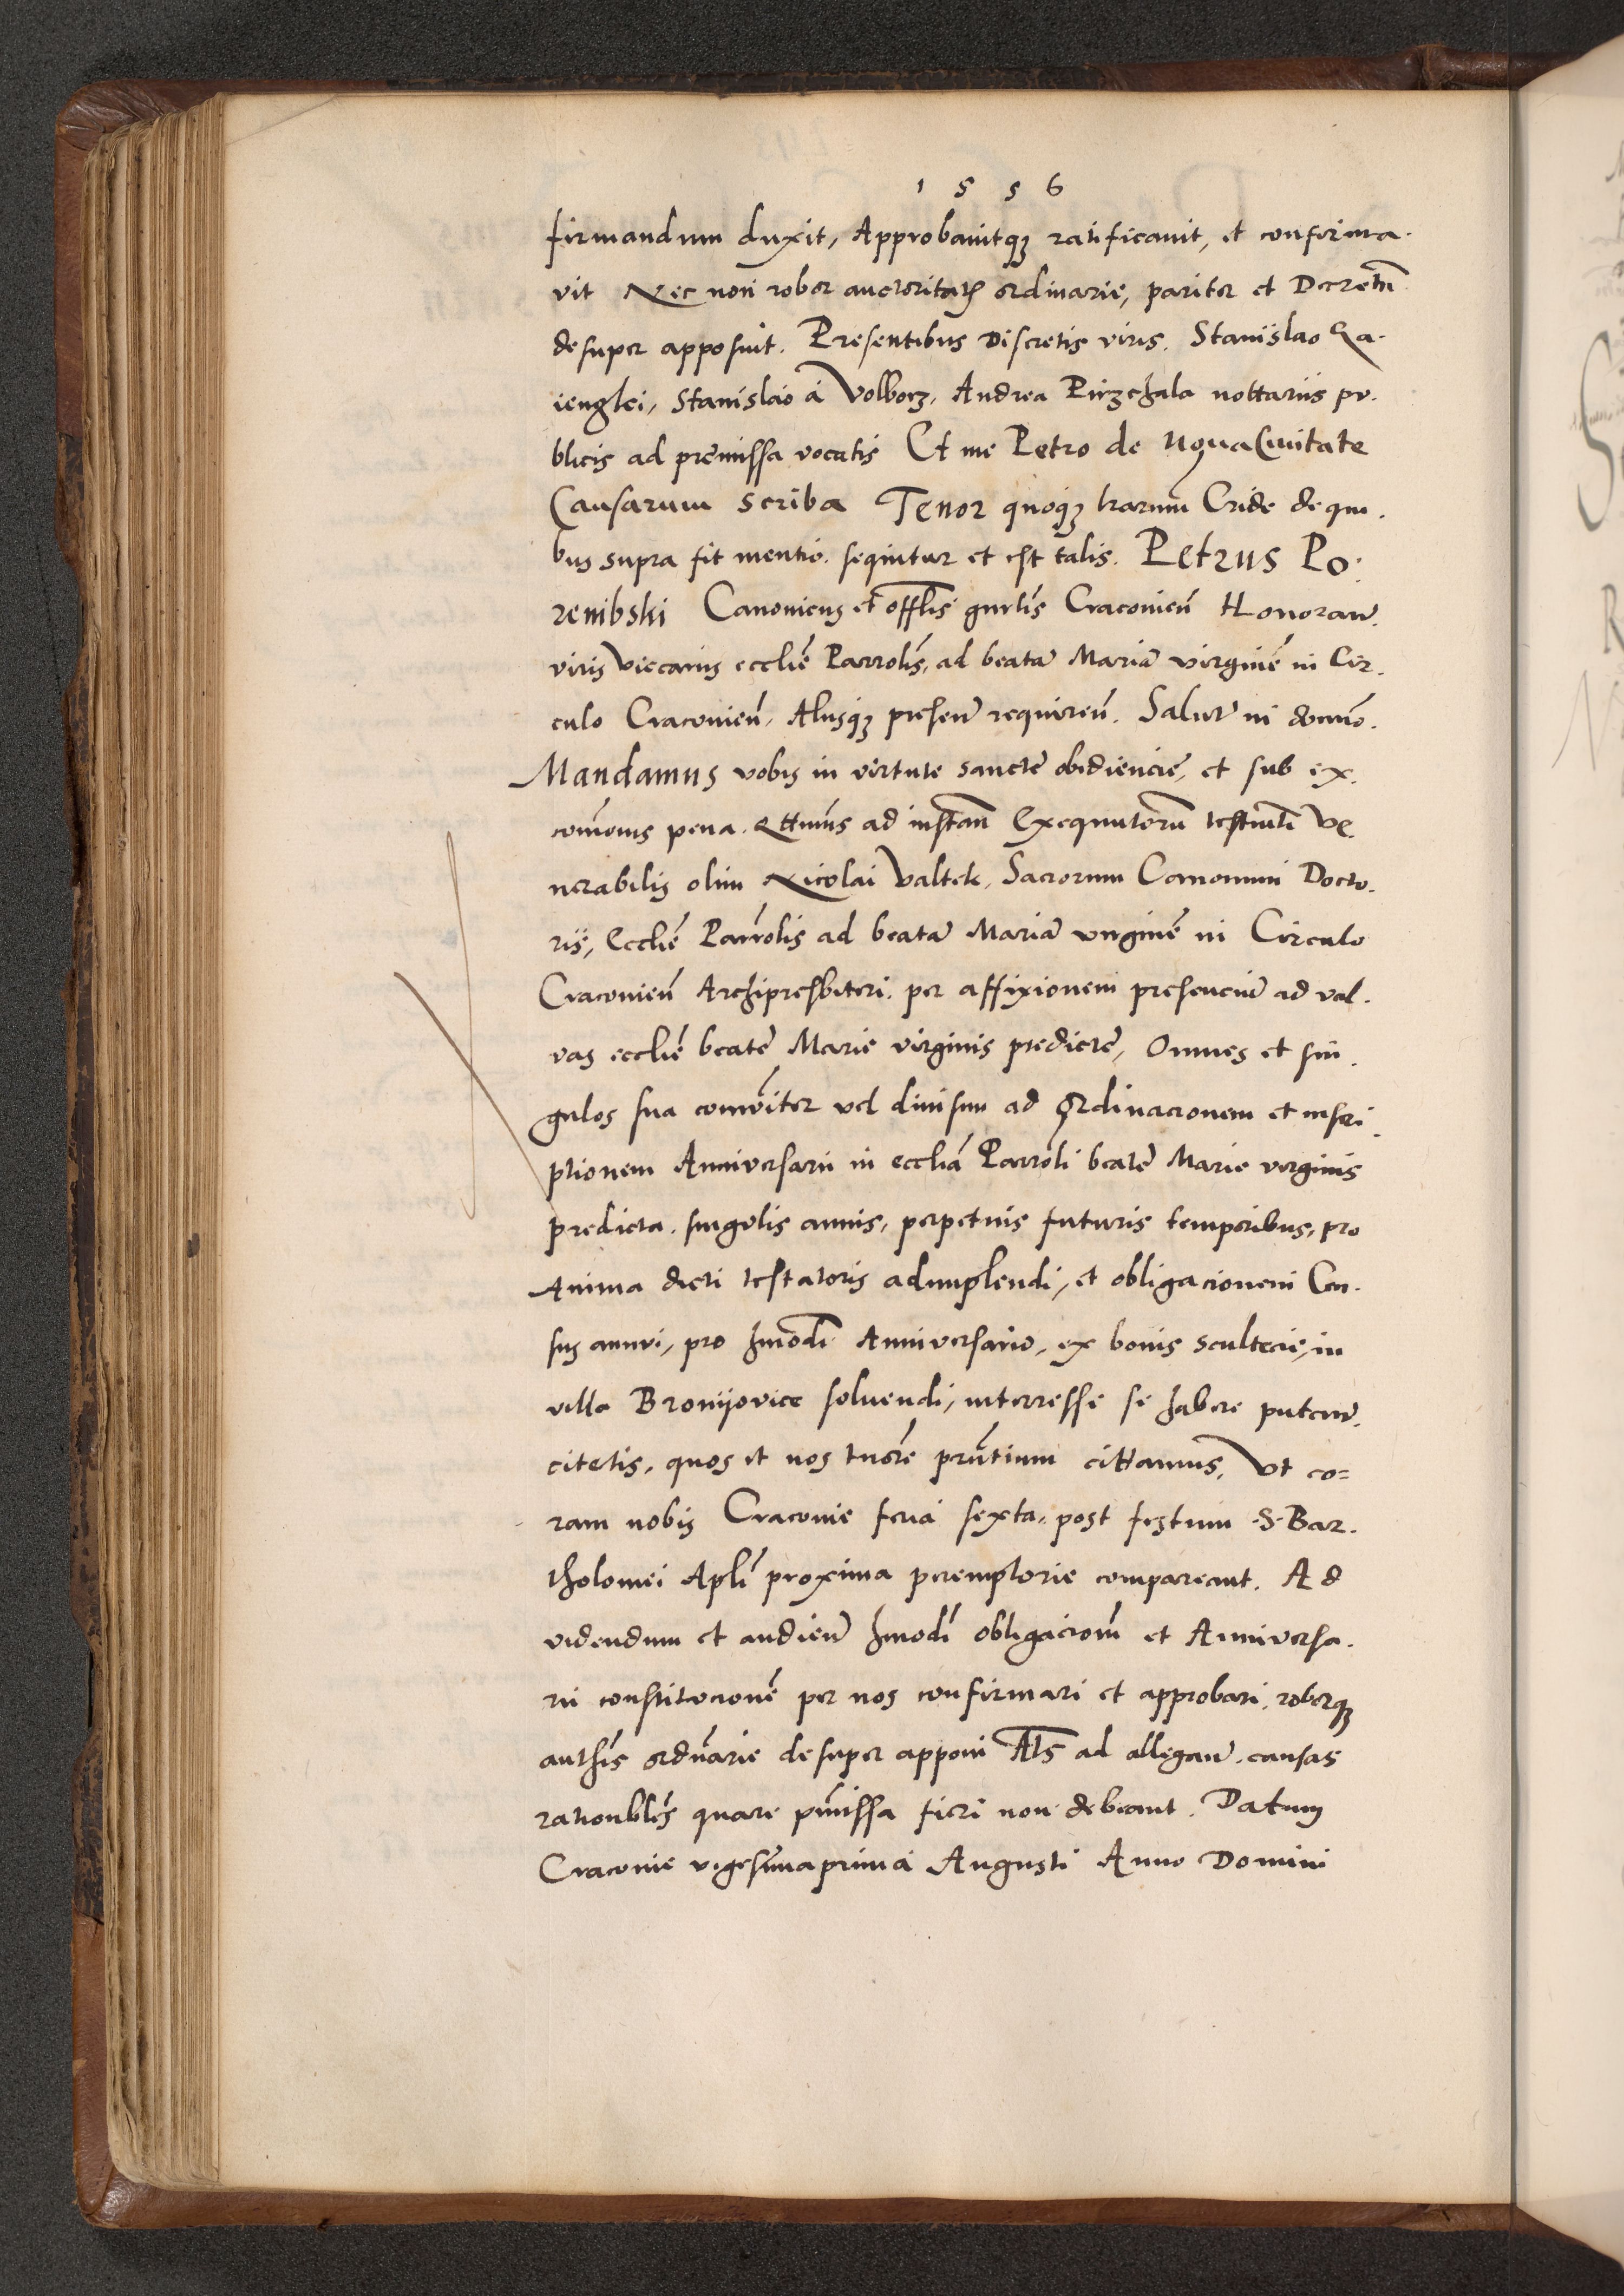 1 5 5 6
firmandum duxit, Approbauitqꝫ ratificauit, et confirma.
vit Nec non robor auctoritatꝭ ordinarie, pariter et Decretũ
desuper apposuit. Presentibus Discretis viris. Stanislao Ra.
ienglei, Stanislao á Volborz, Andrea Pirzchala nottariis pu.
blicis ad premissa vocatis Et me Petro de Noua Ciuitate
Causarum Scriba Tenor quoqꝫ lrarum̃ Cride de qui.
bus supra fit mentio. sequitur et est talis. Petrus Po.
rembski Canonicus et offlis gnrlis̃ Craconien̄ Honoran̄.
viris Viccariis ecclie̅ Parrolis̃, ad beatã Mariã virginẽ in Cir.
culo Craconien̄, Aliisqꝫ presen̄ requiren̄. Salutẽ in domı̃o.
Mandamus vobis in virtute sancte obidiencie, et sub ex.
com̃onis pena. Qttnus̃ ad instan̄ Exequutorũ testm̃ti Ve.
nerabilis olim Nicolai Valtek, Sacrorum Canonum Docto.
ris, Ecclie̅ Parrolis̃ ad beatã Mariã virginẽ in Circulo
Craconien̄ Archipresbiteri. per affixionem presenciũ ad val.
vas ecclie̅ beate Marie virginis predicte, Omnes et sin.
gulos sua com̃niter vel diuisim ad Ordinacionem et inscri.
ptionem Anniuersarii in ecclia̅ Parroli̅ beate Marie virginis
predicta. singulis annis, perpetuis futuris temporibus, pro
Anima dicti testatoris adimplendi, et obligacionem Cen.
sus annui, pro hmodi̅ Anniuersario, ex bonis Scultecie, in
villa Bronijovice soluendi, interresse se habere puten̄.
citetis, quos et nos tnore̅ prn̄tium cittamus, Vt co=
ram nobis Craconie feria sexta, post festum S. Bar.
tholomei Apli̅ proxima peremptorie compareant. Ad
videndum et audien̄ hmodi̅ obligaciom̃ et Anniuersa.
rii constitucionẽ per nos confirmari et approbari, roborqꝫ
authis̃ ordn̄arie desuper apponi Als̄ ad allegan̄. causas
rationbles̃ quare pm̃issa fieri non debeant. Datum
Craconie vigesima prima Augusti Anno Domini